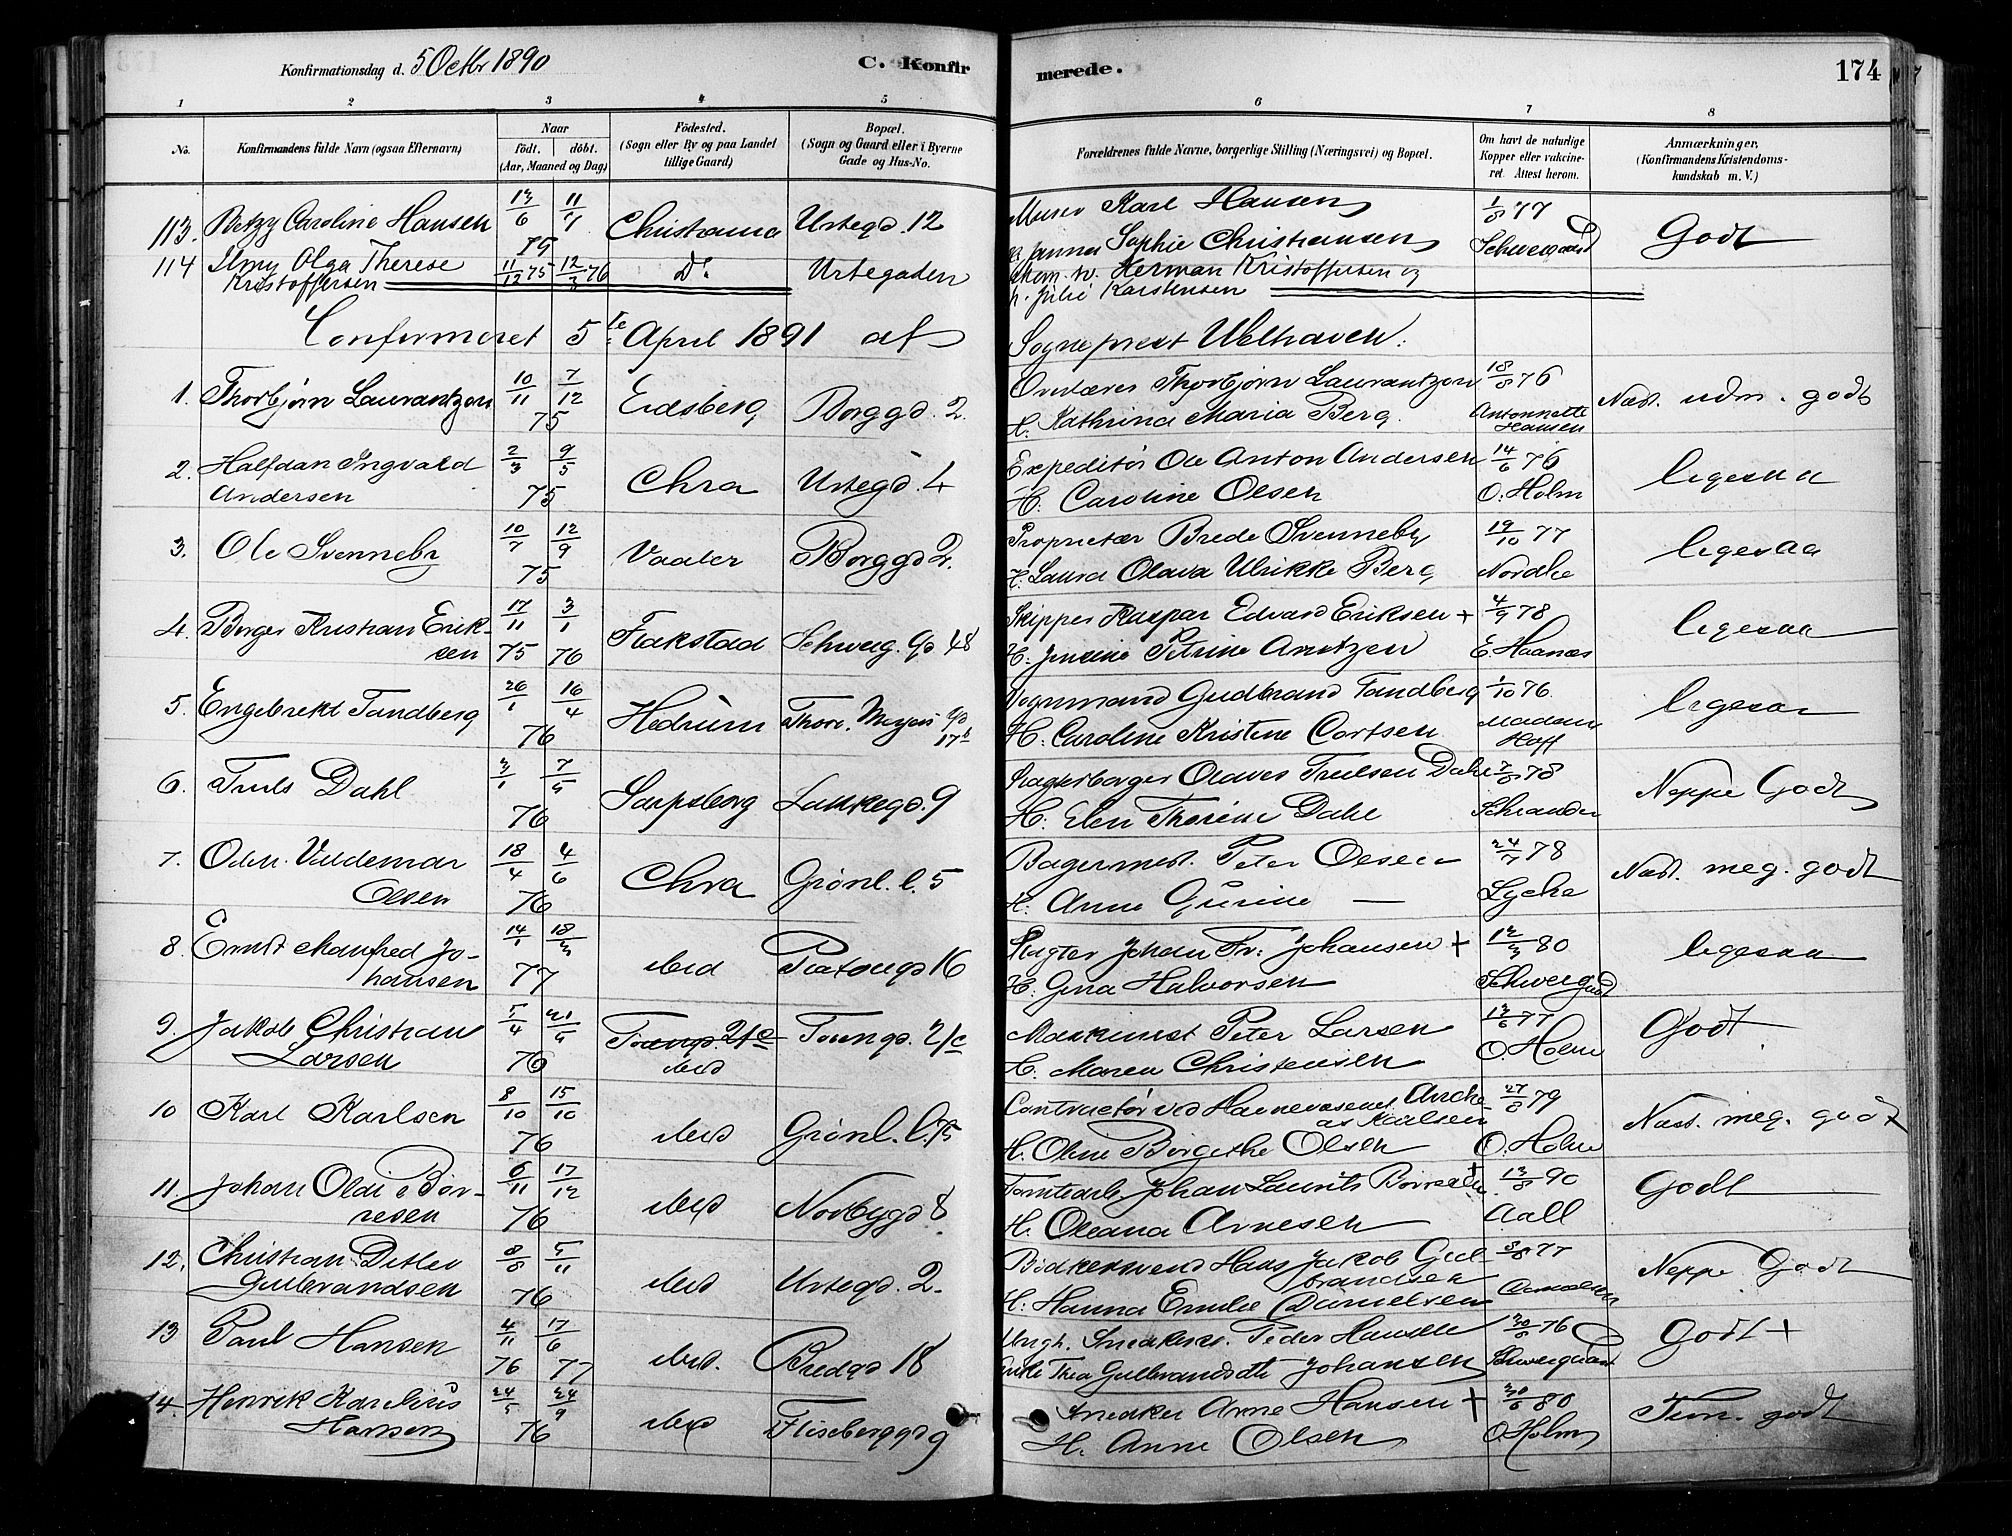 Konfirmationsdag d. 5 Octbr 1890
C. Konfirmerede.
174
1 2 3 4 5 6 7 8
No.
Konfirmandens fulde Navn (ogsaa Efternavn)
Naar
født. døbt.
(Aar, Maaned og Dag)
Fødested.
(Sogn eller By og paa Landet tillige Gaard)
Bopæl.
(Sogn og Gaard eller i Byerne Gade og Hus-No.
Forældrenes fulde Navne, borgerlige Stilling (Næringsvei) og Bopæl.
Om havt de naturlige Kopper eller vakcineret. Attest herom.
Anmærkninger.
(Konfirmandens Kristendomskundskab m. V.)
113. Betzy Caroline Hansen 13/6 75 Christiania Urtegd. 12 Murer Karl Hansen 1/8 77 Godt
Sophie Christiansen Schweigaard
114 Olga Therese 11/12 75 12/3 76 Do. Urtegaden Herman Kristoffersen og
Kristoffersen Julie Karstensen
Confirmeret 5te April 1891 af Sogneprest Welhaven.
1. Thorbjørn Laurantzon 10/11 7/12 75 Eidsberg Borggd. 2. Overlærer Thorbjørn Laurantzon 18/8 76 Næst. udm. godt
H. Kathrina Maria Berg Antonnette Hansen
2. Halfdan Ingvald 2/3 9/5 75 Chra Urtegd. 4 Expeditør Ole Anton Andersen 14/6 76 ligesaa
Andersen H. Caroline Olsen O. Holm
3. Ole Svenneby 10/7 12/9 75 Vaaler Borggd 2. Proprietær Brede Svenneby 19/10 77 ligesaa
H. Laura Olava Ulrikke Berg
4. Birger Kristian Erik- 17/11 75 3/1 76 Flakstad Schweig. Gd 48 Skipper Kaspar Edvard Eriksen + 4/9 78 ligesaa
sen H. Jensine Petrine Arntzen E. Haanæs
5. Engebrekt Tandberg 26/1 16/4 76 Hedrum Thorv. Meyers Gd 17b Vognmand Gudbrand Tandberg 1/10 76. ligesaa
H. Caroline Kristine Cortsen Madam Hoff
6. Truls Dahl 3/1 76 Sarpsborg Lakkegd. 9 Olaves Trulsen Dahl 78 Neppe Godt
H. Elen Thorine Dahl
7. Odin Valdemar 18/4 4/6 76 Chra Grønl. l. 5 Bagermest. Peter Olsen 24/7 78 Næst. meg. godt
Olsen H. Anne Gurine — Lyche
8. Ernst Manfred Jo- 14/1 18/3 77 ibid Platougd 16 Slagter Johan Fr. Johansen + 12/3 80 ligesaa
hansen H. Gina Halvorsen Schweigaard
9. Jakob Christian 5/4 76 Tøiengd. 21c Tøiengd. 21c Maskinist Peter Larsen 13/6 77 Godt
Larsen ibid H. Maren Christensen O. Holm
10 Karl Karlsen 8/10 15/10 76 ibid Grønl. l. Contractør ved Havnevæsenet Andre- 27/8 79 Næst. meg. godt
as Karlsen
H. Oline Birgethe Olsen O. Holm
11. Johan Oldie Bør- 6/11 17/12 76 ibid Norbygd 8 Johan Laurits Børresen 13/8 90 Godt
resen H. Oleana Arnesen Aall
12. Christian Ditlev 8/8 5/11 76 ibid Urtegd. 2. Bødkersvend Hans Jakob Gul- 3/8 77 Neppe Godt
Gulbrandsen brandsen
H. Hanna Emilie Danielsen
13 Paul Hansen 4/11 76 17/6 77 ibid. Bredgd 18 Ungk. Snedkersv. Peder Hansen 30/8 76 Godt +
Pike Thea Gulbrandsdt Johansen Schweigaard
14. Henrik Kornelius 24/5 24/9 76 ibid Flisberggd 9 Snedker Arne Hansen + 30/6 80 Tem. godt
Hansen H. Anne Olsen O. Holm